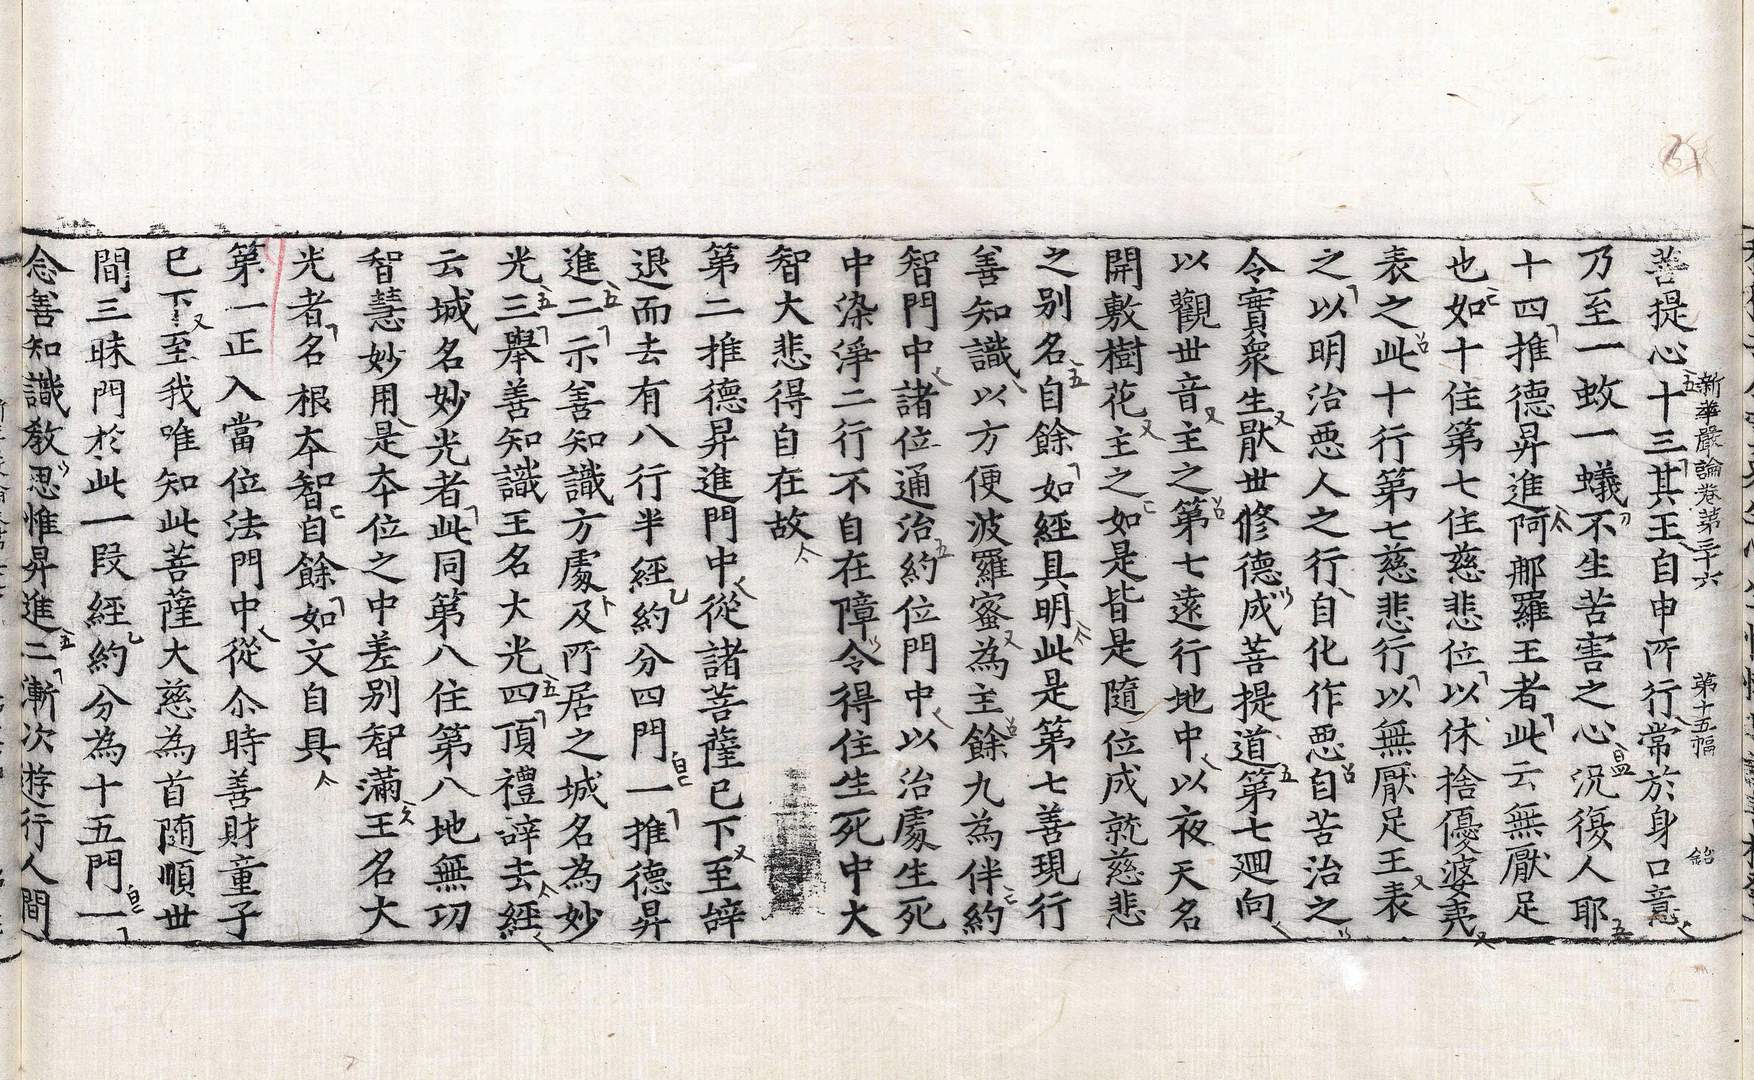 菩提心十三其王自申所行常於身口意
新華嚴論卷第三十六 第十五幅
乃至一蚊一蟻不生苦害之心況復人耶
十四推德昇進阿那羅王者此云無厭足
也如十住第七住慈悲位以休捨優婆夷
表之此十行第七慈悲行以無厭足王表
之以明治惡人之行自化作惡自苦治之
令實衆生厭世修德成菩提道第七迴向
以觀世音主之第七遠行地中以夜天名
開敷樹花主之如是皆是隨位成就慈悲
之別名自餘如經具明此是第七善現行
善知識以方便波羅蜜為主餘九為伴約
智門中諸位通治約位門中以治處生死
中染淨二行不自在障令得住生死中大
智大悲得自在故
第二推德昇進門中從諸菩薩已下至辝
退而去有八行半經約分四門一推德昇
進二示善知識方處及所居之城名為妙
光三舉善知識王名大光四頂禮辝去經
云城名妙光者此同第八住第八地無功
智慧妙用是本位之中差別智滿王名大
光者名根本智自餘如文自具
第一正入當位法門中從尒時善財童子
已下至我唯知此菩薩大慈為首随順世
間三昧門於此一段經約分為十五門一
念善知識教思惟昇進二漸次遊行人間